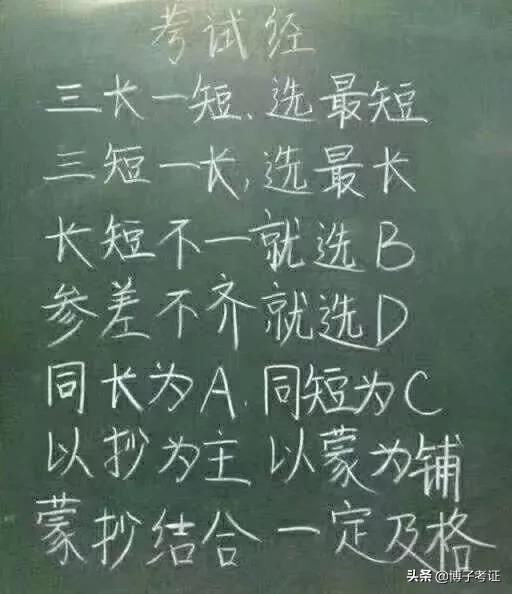 考试经
三长一短、选最短
三短一长,选最长
长短不一就选B
参差不齐就选D
同长为A.同短为C
以抄为主 以蒙为铺
蒙抄结合 一定及格
头条 @博子考证